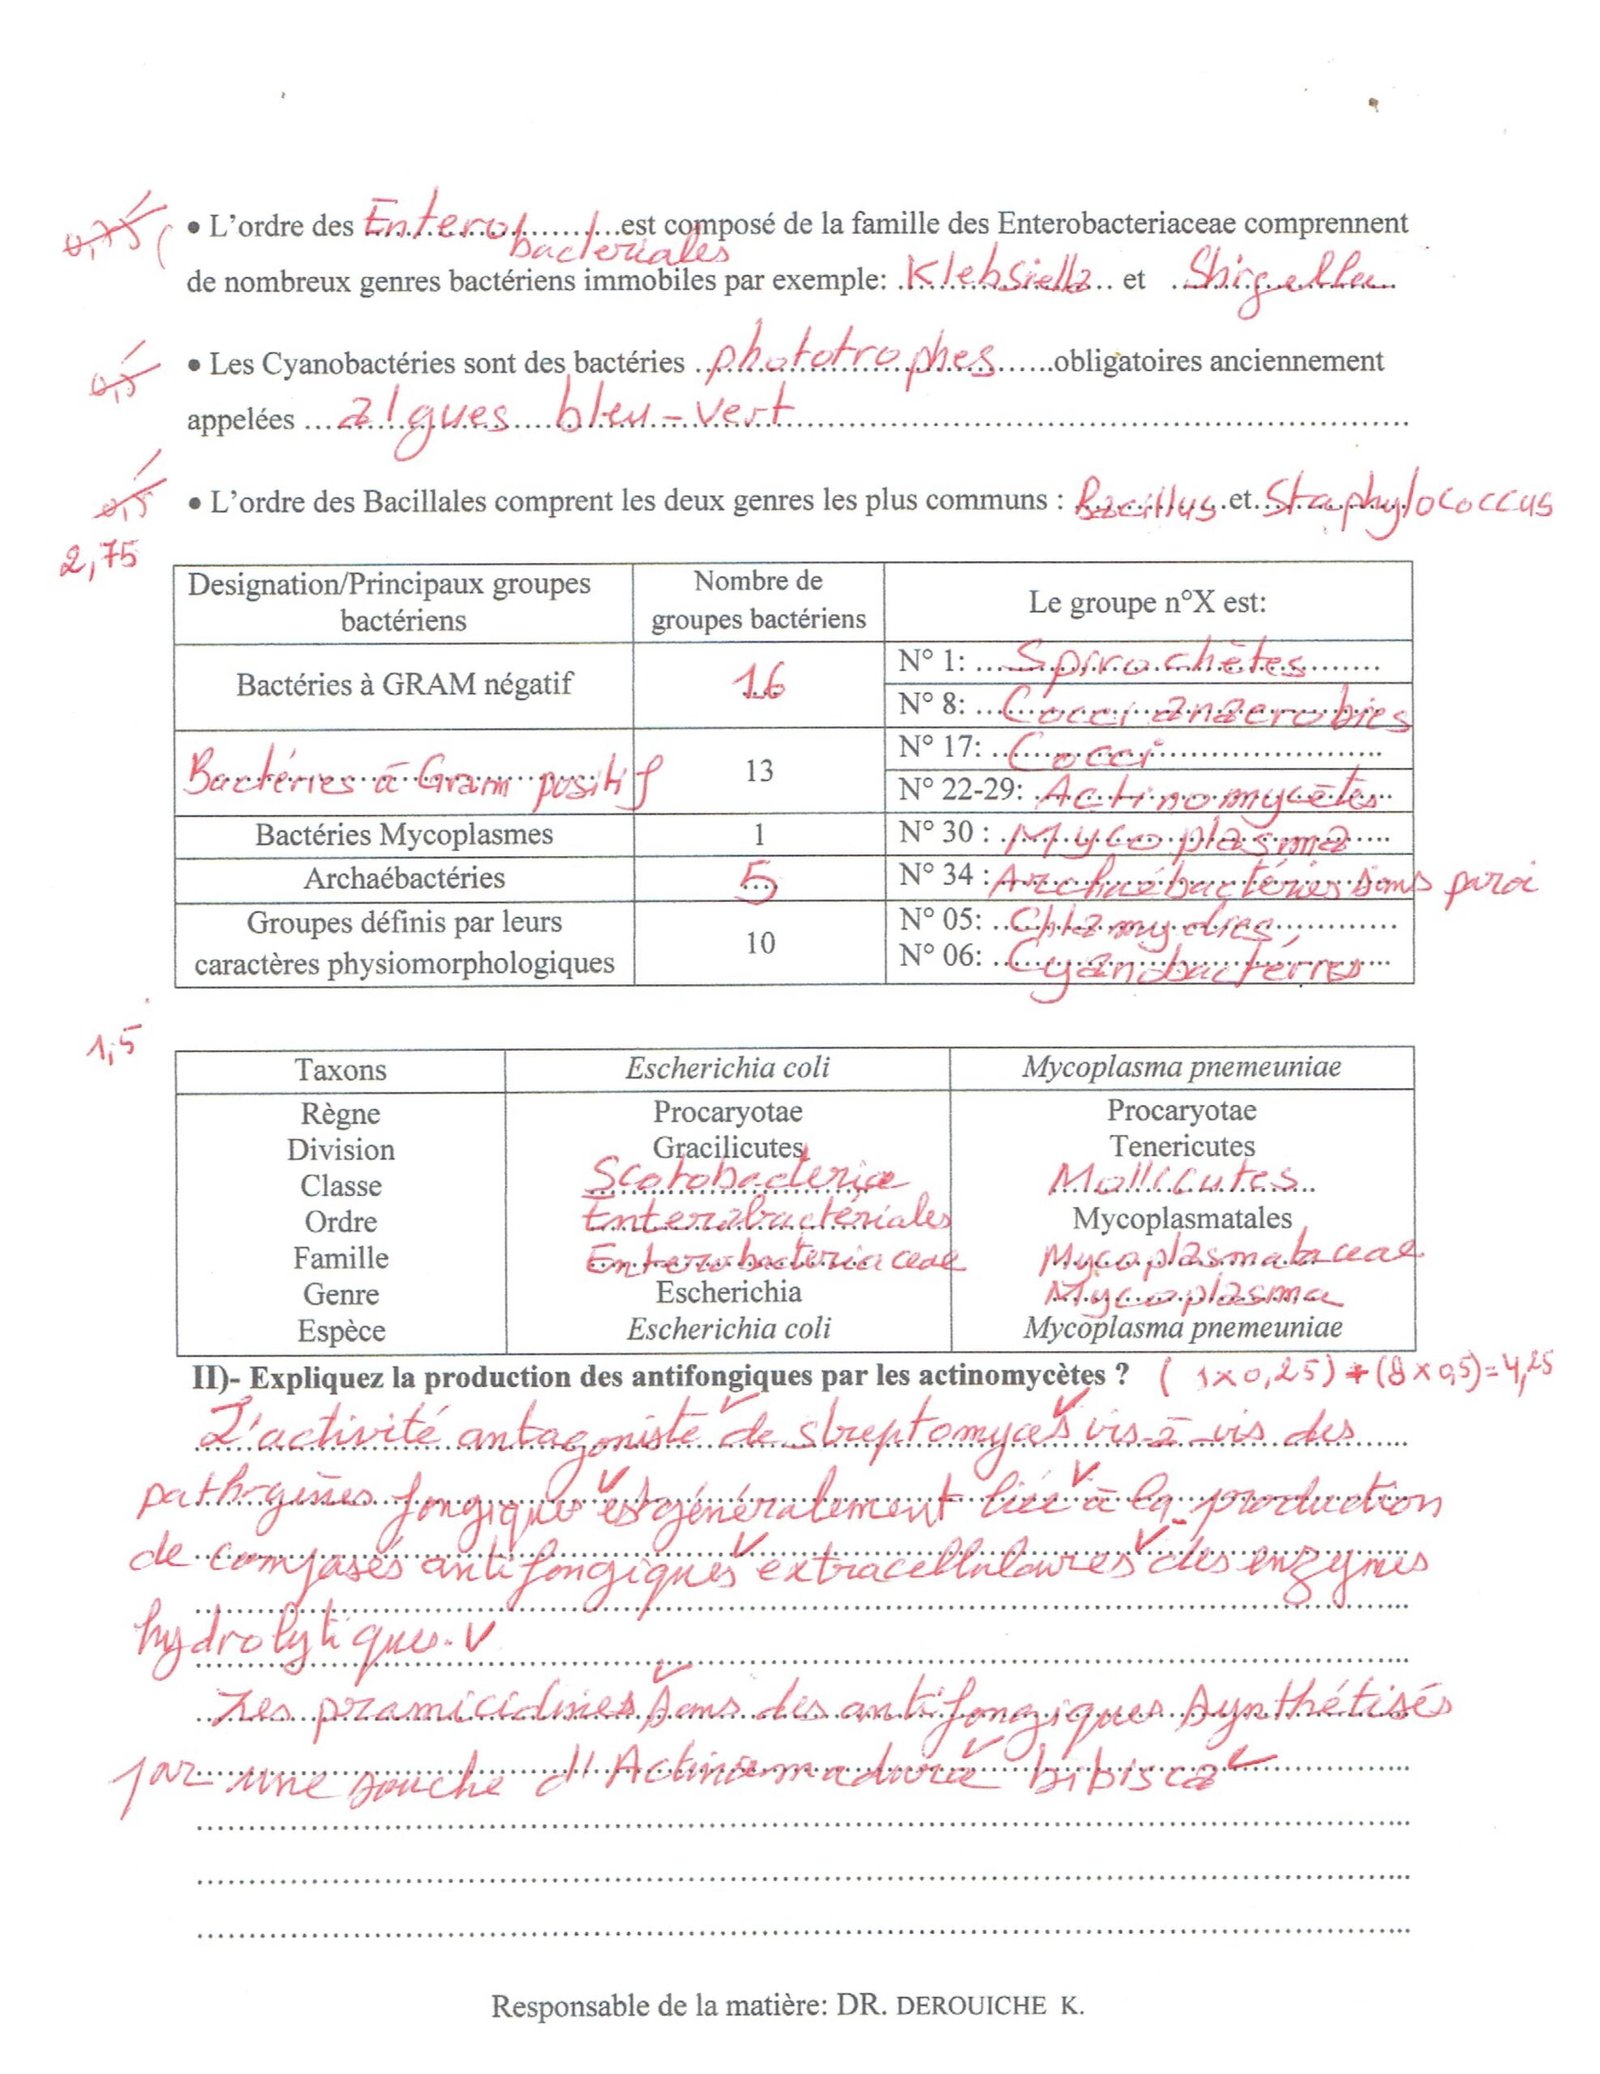 0,75
• L'ordre des Enterobacteriales est composé de la famille des Enterobacteriaceae comprennent
de nombreux genres bactériens immobiles par exemple: Klebsiella et Shigella
0,5
• Les Cyanobactéries sont des bactéries phototrophes obligatoires anciennement
appelées algues bleu-vert
0,5
• L'ordre des Bacillales comprent les deux genres les plus communs : Bacillus et Staphylococcus
2,75
Designation/Principaux groupes bactériens
Nombre de groupes bactériens
Le groupe n°X est:
Bactéries à GRAM négatif
16
N° 1: Spirochètes
N° 8: Cocci anaerobies
Bactéries à Gram positif
13
N° 17: Cocci
N° 22-29: Actinomycètes
Bactéries Mycoplasmes
1
N° 30 : Mycoplasma
Archaébactéries
5
N° 34 : Archaébactéries sans paroi
Groupes définis par leurs caractères physiomorphologiques
10
N° 05: Chlamydies,
N° 06: Cyanobactéries
1,5
Taxons Escherichia coli Mycoplasma pnemeuniae
Règne Procaryotae Procaryotae
Division Gracilicutes Tenericutes
Classe Scotobacteria Mollicutes
Ordre Enterobactériales Mycoplasmatales
Famille Enterobacteriaceae Mycoplasmataceae
Genre Escherichia Mycoplasma
Espèce Escherichia coli Mycoplasma pnemeuniae
II)- Expliquez la production des antifongiques par les actinomycètes ? (1x0,25)+(8x0,5)=4,25
L'activité antagoniste de streptomyces vis-à-vis des
pathogènes fongique est généralement liée à la production
de composés antifongiques extracellulaires des enzymes
hydrolytiques.
Les pramicidines sons des antifongiques synthétisés
par une souche d'Actinomadura bibisca
Responsable de la matière: DR. DEROUICHE K.